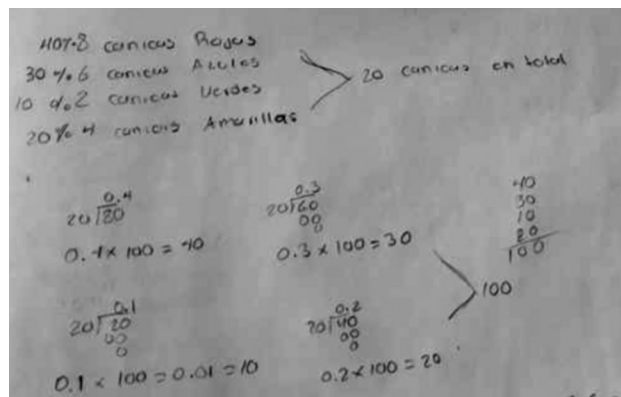 40% 8 canicas Rojas
30 % 6 canicas Azules
10 % 2 canicas Verdes
20% 4 canicas Amarillas
20 canicas en total
0.4
20 80
0.4 x 100 = 40
0.3
20 60
00
0
0.3 x 100 = 30
40
30
10
20
100
100
0.1
20 20
00
0
0.1 x 100 = 0.01 = 10
0.2
20 40
00
0
0.2 x 100 = 20